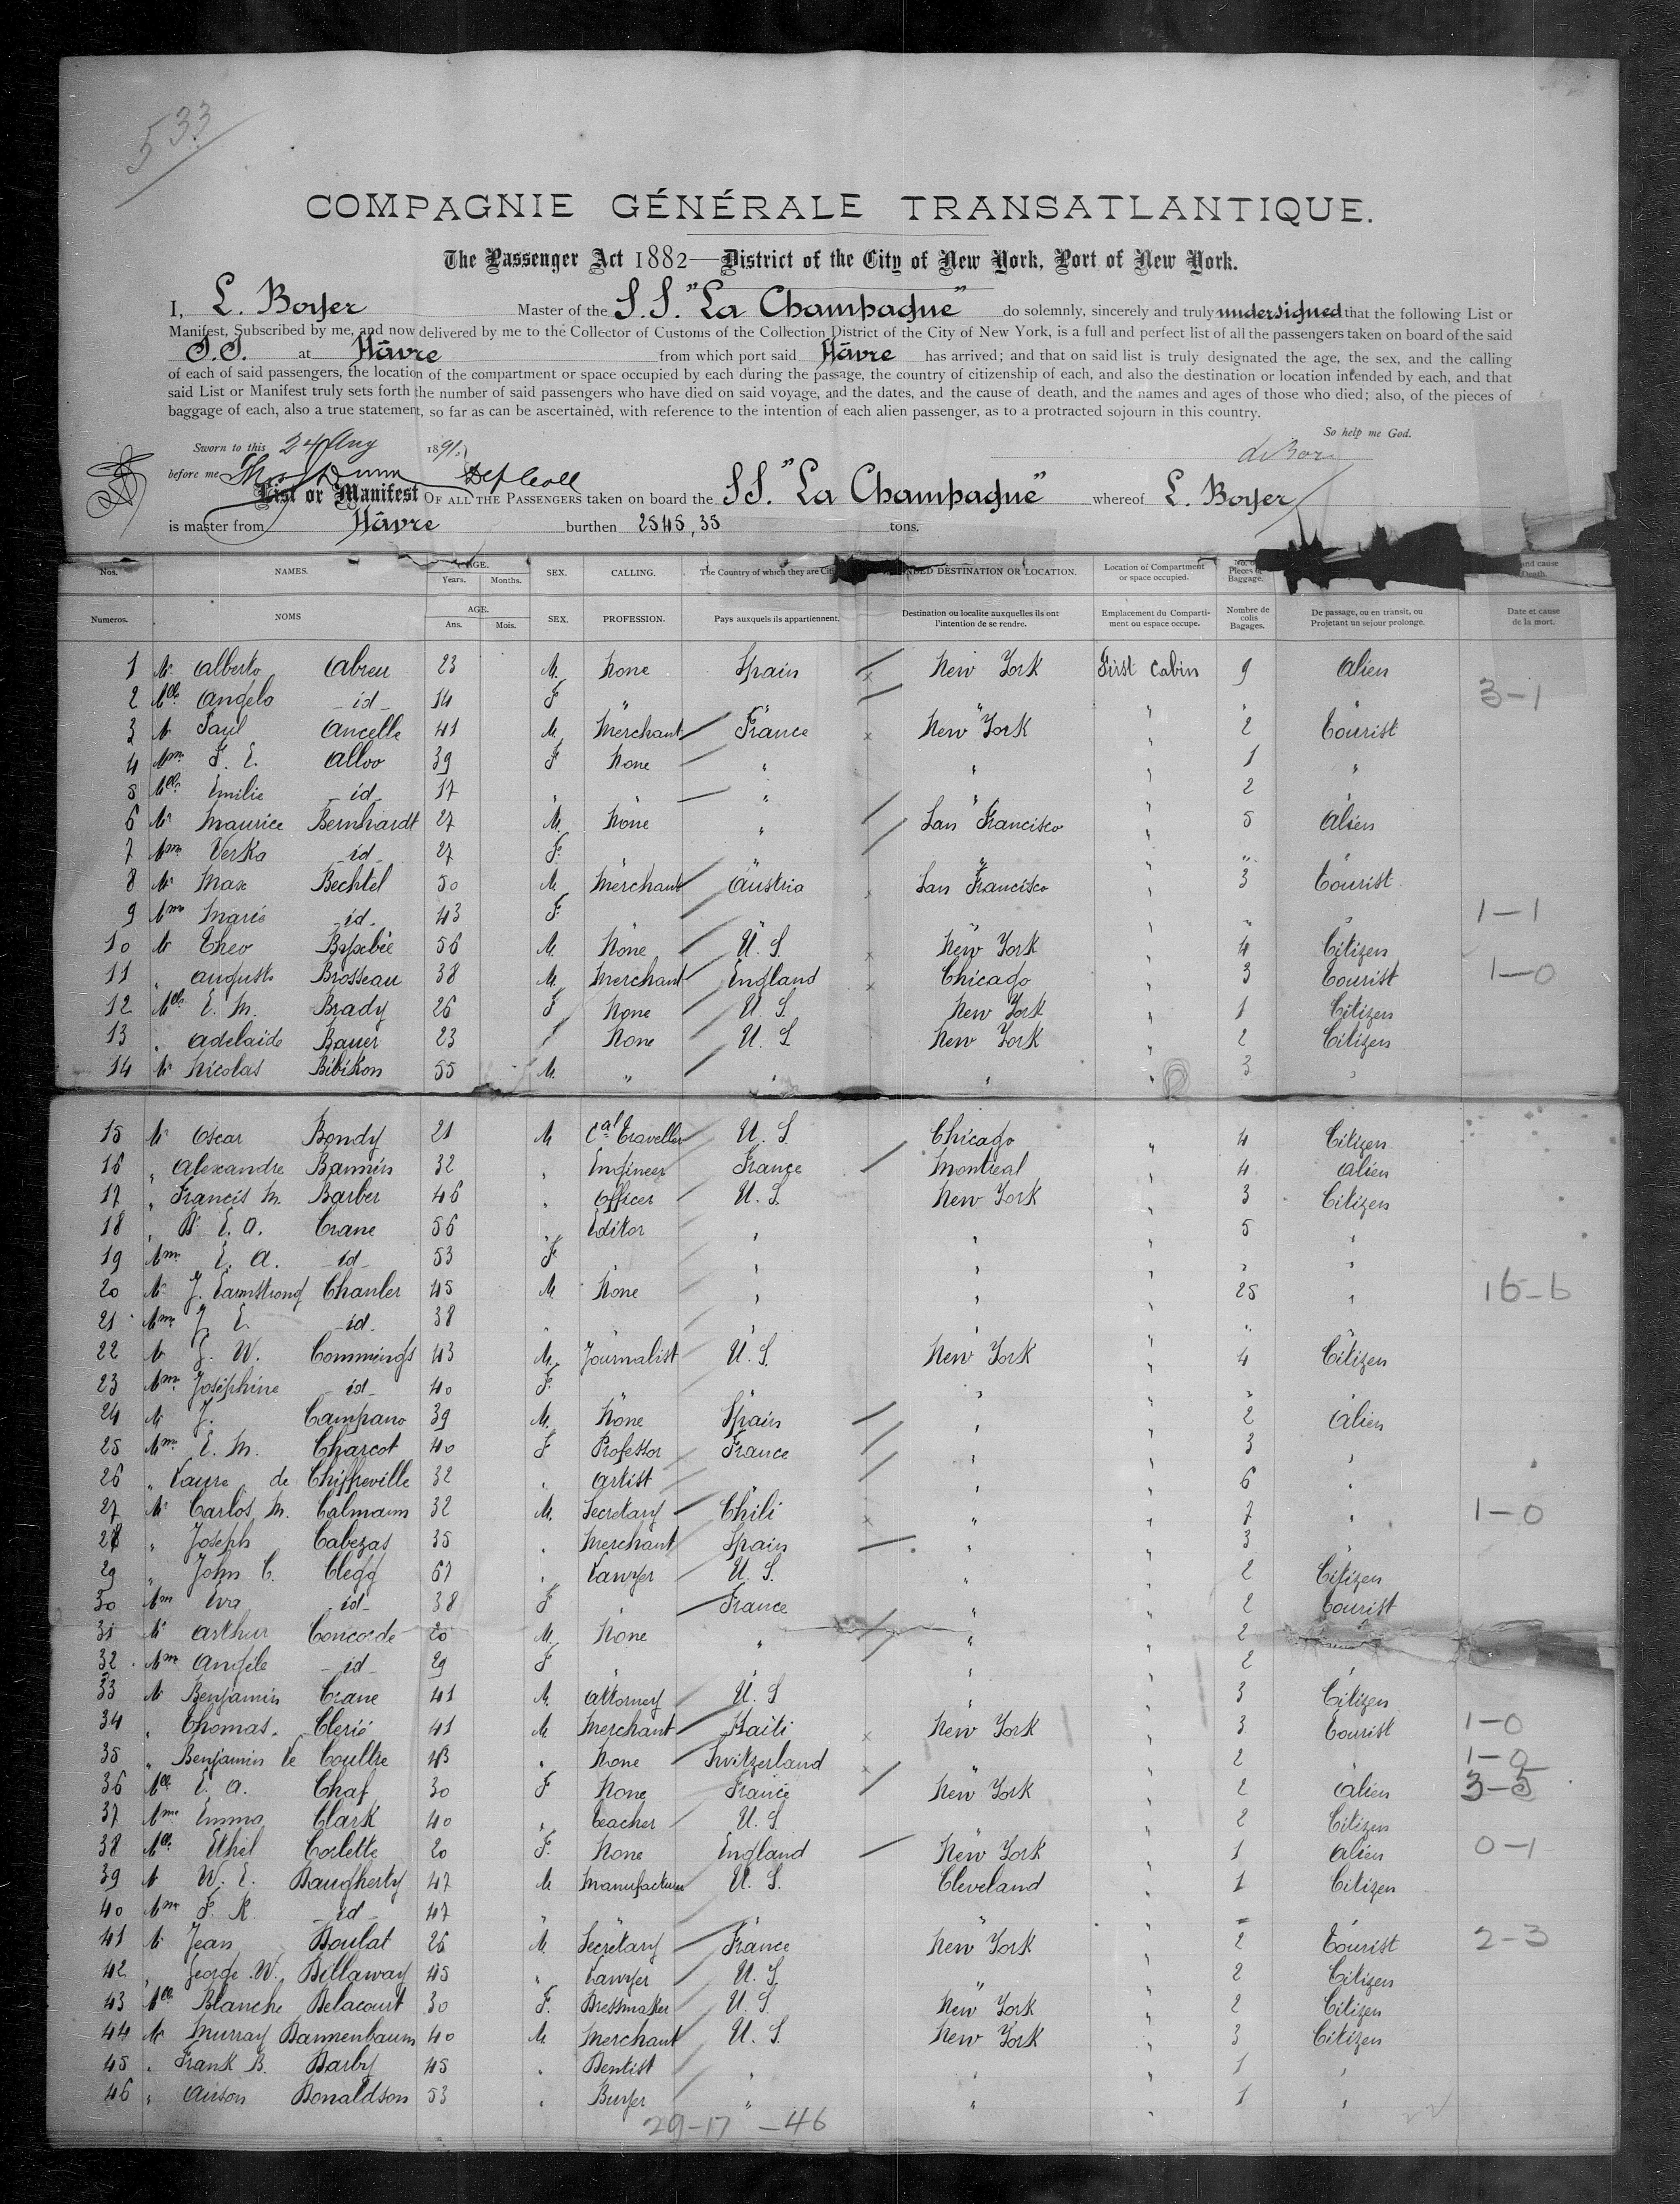 533
COMPAGNIE GÉNÉRALE TRANSATLANTIQUE.
The Passenger Act 1882—District of the City of New York, Port of New York.
I, L. Boyer Master of the S.S. "La Champagne" do solemnly, sincerely and truly undersigned that the following List or
Manifest, Subscribed by me, and now delivered by me to the Collector of Customs of the Collection District of the City of New York, is a full and perfect list of all the passengers taken on board of the said
S.S. at Hâvre from which port said Hâvre has arrived; and that on said list is truly designated the age, the sex, and the calling
of each of said passengers, the location of the compartment or space occupied by each during the passage, the country of citizenship of each, and also the destination or location intended by each, and that
said List or Manifest truly sets forth the number of said passengers who have died on said voyage, and the dates, and the cause of death, and the names and ages of those who died; also, of the pieces of
baggage of each, also a true statement, so far as can be ascertained, with reference to the intention of each alien passenger, as to a protracted sojourn in this country.
So help me God.
Sworn to this 24 Aug 1891.
before me Dunn Dep Coll
List or Manifest OF ALL THE PASSENGERS taken on board the S.S. "La Champagne" whereof L. Boyer
is master from Hâvre burthen 2545,35 tons.
Nos. NAMES. AGE. Years. Months. SEX. CALLING. The Country of which they are DESTINATION OR LOCATION. Location of Compartment or space occupied. No. of Pieces of Baggage. and cause Death.
Numeros. NOMS AGE. Ans. Mois. SEX. PROFESSION. Pays auxquels ils appartiennent. Destination ou localite auxquelles ils ont l'intention de se rendre. Emplacement du Compartiment ou espace occupe. Nombre de colis Bagages. De passage, ou en transit, ou Projetant un sejour prolonge. Date et cause de la mort.
1 Mr Alberto Abreu 23 M. None Spain New York First Cabin 9 Alien
2 Mlle Angelo id 14 F " " " 3-1
3 Mr Paul Ancelle 41 M. Merchant France New York " 2 Tourist
4 Mme F. E. Alloo 39 F None " " " 1 "
5 Mlle Emilie id 17 " " " " " 2
6 Mr Maurice Bernhardt 27 M. None " San Francisco " 5 Alien
7 Mme Verka id 27 F. " " "
8 Mr Max Bechtel 50 M. Merchant Austria San Francisco " 3 Tourist
9 Mme Marie id 43 F. " " 1-1
10 Mr Theo 56 M. None U. S. New York " 4 Citizen
11 " Auguste Brosseau 38 M. Merchant England Chicago " 3 Tourist 1-0
12 Mlle E. M. Brady 26 F None U. S. New York " 1 Citizen
13 " Adelaide Bauer 23 None U. S. New York " 2 Citizen
14 Mr Nicolas Bibikon 55 M. " " " " 3 "
15 Mr Oscar Bondy 21 M Cal Traveller U. S. Chicago " 4 Citizen
16 " Alexandre 32 " Engineer France Montreal " 4 Alien
17 " Francis M. Barber 46 " Officer U. S. New York " 3 Citizen
18 " Dr E. A. Crane 56 " Editor " " " 5 "
19 Mme E. A. id 53 F " " " " "
20 Mr J. Chanler 45 M None " " " 25 " 16-6
21 Mme J. E. id 38 " " " " "
22 Mr J. W. Commings 43 M. Journalist U. S. New York " 4 Citizen
23 Mme Joséphine id 40 F. " " "
24 Mr J. Campano 39 M. None Spain " " 2 Alien
25 Mme E. M. Charcot 40 F Professor France " " 3 "
26 " Laure de Chiffreville 32 " Artist " " 6 "
27 Mr Carlos M. Calmann 32 M. Secretary Chili " " 7 " 1-0
28 " Joseph Cabezas 35 " Merchant Spain " " 3
29 " John C. Clegg 67 " Lawyer U. S. " " 2 Citizen
30 Mme Eva id 38 F " France " " 2 Tourist
31 Mr Arthur Concorde M. None " " " 2
32 Mme Angèle id 29 F " " " 2 "
33 Mr Benjamin Crane 41 M. Attorney U. S " " 3 Citizen
34 " Thomas Clerié 41 M Merchant Haiti New York " 3 Tourist 1-0
35 " Benjamin Le Coultre 43 " None Switzerland " " 2 " 1-0
36 Mlle E. A. Chaf 30 F None France New York " 2 Alien 3-5
37 Mme Emma Clark 40 " Teacher U. S. " " 2 Citizen
38 Mlle Ethel Corlette 20 F. None England New York " 1 Alien 0-1
39 Mr W. E. Daugherty 47 M Manufacturer U. S. Cleveland " 1 Citizen
40 Mme F. R. id 47 " " " "
41 Mr Jean Doulat 26 M. Secretary France New York " 2 Tourist 2-3
42 " George W. Dillaway 45 " Lawyer U. S. " 2 Citizen
43 Mlle Blanche Delacourt 30 F. Dressmaker U. S. New York " 2 Citizen
44 Mr Murray Dannenbaum 40 M Merchant U. S. New York " 3 Citizen
45 " Frank B. Darby 45 " Dentist " " " 1 "
46 " Donaldson 53 " Buyer " " " 1 "
29-17-46